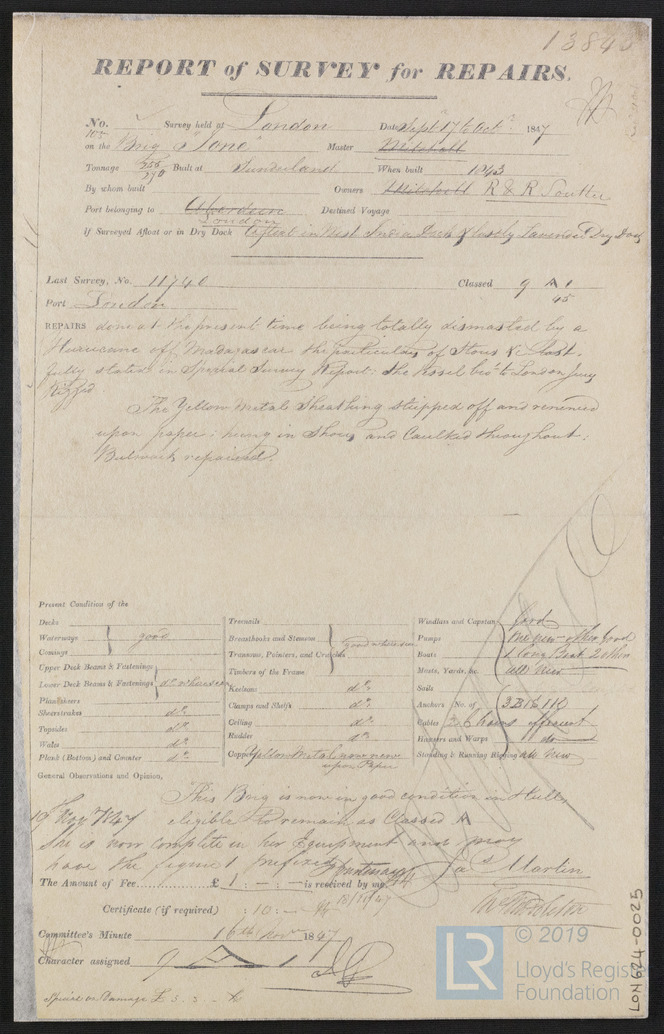 REPORT of SURVEY for REPAIRS.
No. Survey held at London Date Sept 17 to Octr 1847
on the Brig "Jane" Master Mitchell
Tonnage Built at Sunderland When built 1843
By whom built Owners Mitchell R & R Soutter
Port belonging to Aberdeen Destined Voyage
London
If Surveyed Afloat or in Dry Dock Afloat in West India Dock & lastly Lavender Dry Dock
Last Survey, No. 11740 Classed 9 A 1
45
Port London
REPAIRS done at the present time being totally dismasted by a
Hurricane off Madagascar the particulars of Stores &
fully stated in Special Survey Report: the Vessel bro't to London Jury
Rigged
The Yellow Metal Sheathing stripped off and renewed
upon paper: hung in Shores and Caulked throughout:
Bulwark repaired.
Present Condition of the
Decks
Waterways good
Comings
Upper Deck Beams & Fastenings
Lower Deck Beams & Fastenings do where seen
Planksheers
Sheerstrakes do
Topsides do
Wales do
Plank (Bottom) and Counter do
Treenails
Breasthooks and Stemson good where seen
Transoms, Pointers, and Crutches
Timbers of the Frame
Keelsons do
Clamps and Shelfs do
Ceiling do
Rudder do
Copper Yellow Metal now new
upon Paper
Windlass and Capstan Good
Pumps One new - other Good
Boats 1 Long Boat 2 others
Masts, Yards, &c. all New
Sails
Anchors No. of 3 B 1 S 1 K
Cables 2 Chains efficient
Hawsers and Warps do
Standing & Running Rigging all New
General Observations and Opinion,
This Brig is now in good condition in Hull &
eligible to remain as Classed A
19 Nov 1847
She is now complete in her Equipment and may
have the figure 1 prefixed
The Amount of Fee £ 1 : - : - is received by me, Jas Martin
18/11/47
Certificate (if required) : 10 : -
Committee's Minute 16th Novr 1847
Character assigned 9 A 1
Special or Damage £ 5 . 5 . -
LON 624-0025
LR
© 2019
Lloyd's Register
Foundation